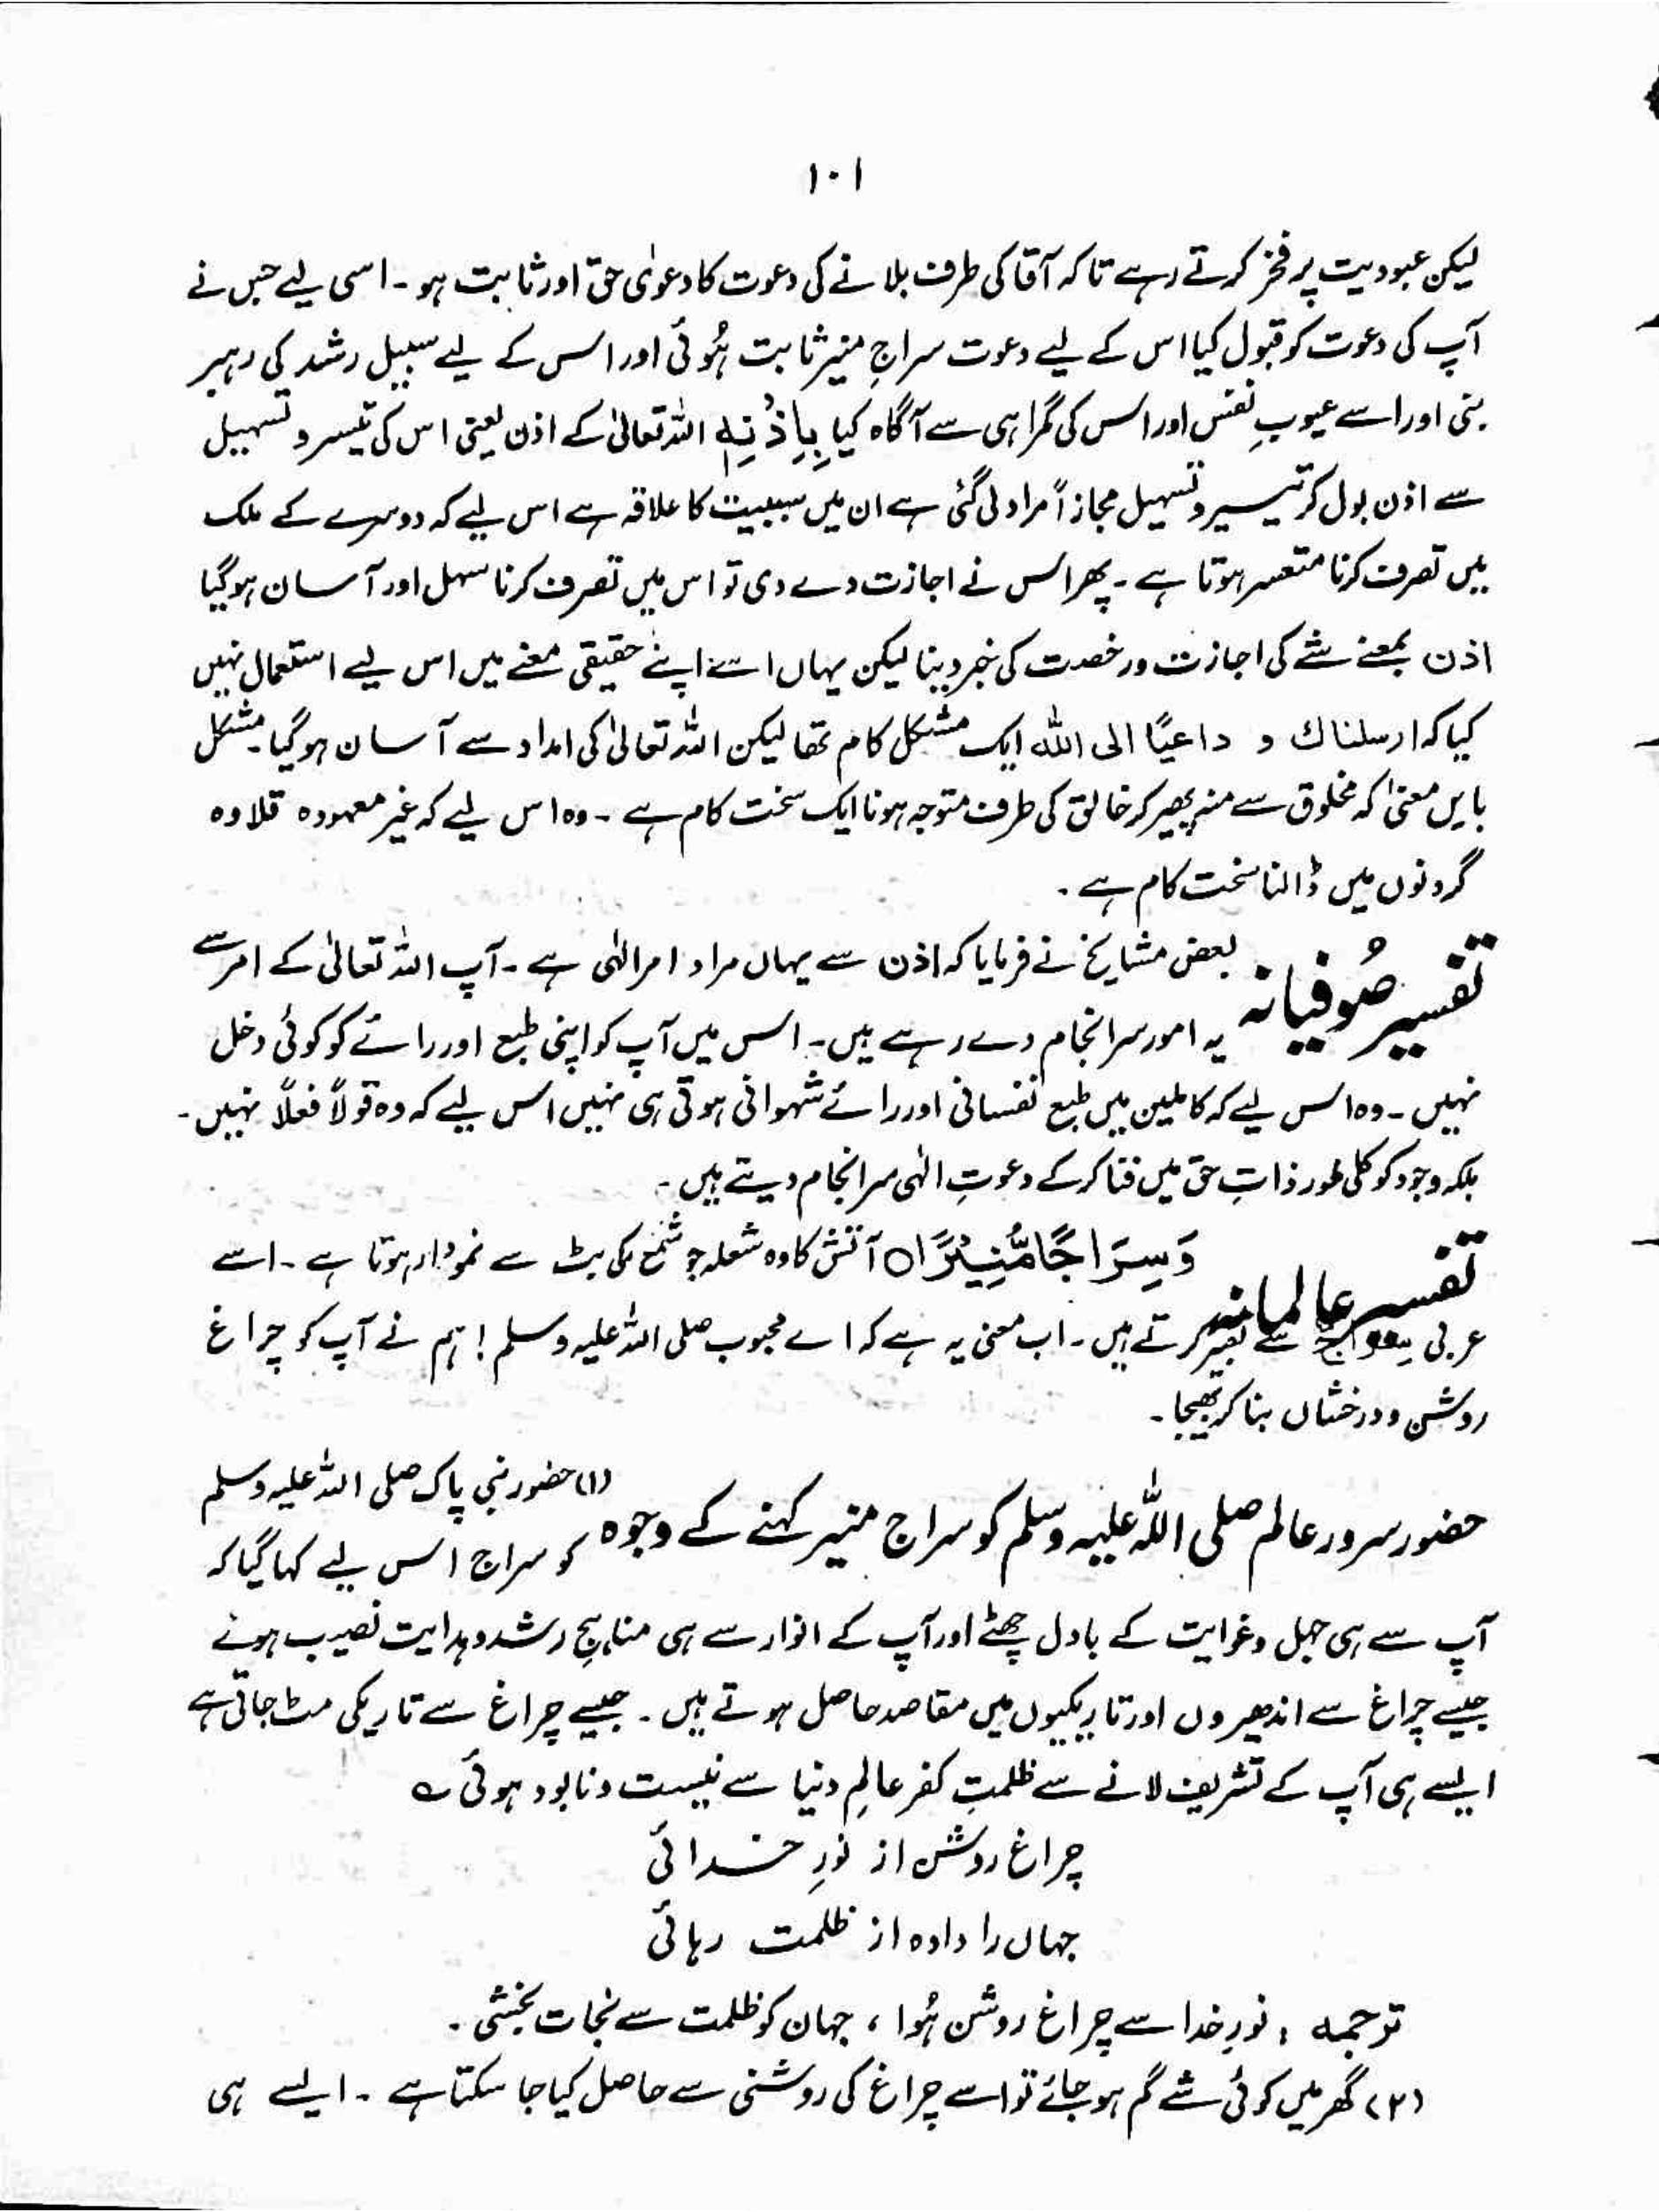 ۱۰۱
لیکن عبودیت پر فخر کرتے رہے تاکہ آقا کی طرف بلانے کی دعوت کا دعوٰی حق اور ثابت ہو۔ اسی لیے جس نے
آپ کی دعوت کو قبول کیا اس کے لیے دعوت سراجِ منیر ثابت ہُوئی اور اس کے لیے سبیل رشد کی رہبر
بنی اور اسے عیوبِ نفس اور اس کی گمراہی سے آگاہ کیا بِاِذْنِهٖ اللہ تعالیٰ کے اذن یعنی اس کی تیسیر و تسہیل
سے اذن بول کر تیسیر و تسہیل مجازاً مراد لی گئی ہے ان میں سببیت کا علاقہ ہے اس لیے کہ دوسرے کے ملک
میں تصرف کرنا متعسر ہوتا ہے۔ پھر اس نے اجازت دے دی تو اس میں تصرف کرنا سہل اور آسان ہو گیا
اذن بمعنے شے کی اجازت و رخصت کی خبر دینا لیکن یہاں اسے اپنے حقیقی معنے میں اس لیے استعمال نہیں
کیا کہ ارسلناك و داعیًا الی اللہ ایک مشکل کام تھا لیکن اللہ تعالیٰ کی امداد سے آسان ہو گیا۔ مشکل
بایں معنیٰ کہ مخلوق سے منہ پھیر کر خالق کی طرف متوجہ ہونا ایک سخت کام ہے۔ وہ اس لیے کہ غیر معہودہ قلادہ
گردنوں میں ڈالنا سخت کام ہے۔
تفسیر صُوفیانہ بعض مشایخ نے فرمایا کہ اذن سے یہاں مراد امر الٰہی ہے۔ آپ اللہ تعالیٰ کے امر سے
یہ امور سر انجام دے رہے ہیں۔ اس میں آپ کو اپنی طبع اور رائے کو کوئی دخل
نہیں۔ وہ اس لیے کہ کاملین میں طبع نفسانی اور رائے شہوانی ہوتی ہی نہیں اس لیے کہ وہ قولاً فعلاً نہیں۔
بلکہ وجود کو کلی طور ذاتِ حق میں فنا کر کے دعوتِ الٰہی سر انجام دیتے ہیں۔
تفسیر عالمانہ وَسِرَاجًا مُّنِيْرًا ○ آتش کا وہ شعلہ جو شمع کی بٹ سے نمودار ہوتا ہے۔ اسے
عربی سراج سے تعبیر کرتے ہیں۔ اب معنی یہ ہے کہ اے محبوب صلی اللہ علیہ وسلم! ہم نے آپ کو چراغ
روشن و درخشاں بنا کر بھیجا۔
حضور سرور عالم صلی اللہ علیہ وسلم کو سراج منیر کہنے کے وجوہ (۱) حضور نبی پاک صلی اللہ علیہ وسلم
کو سراج اس لیے کہا گیا کہ
آپ سے ہی جہل و غوایت کے بادل چھٹے اور آپ کے انوار سے ہی مناہجِ رشد و ہدایت نصیب ہوئے
جیسے چراغ سے اندھیروں اور تاریکیوں میں مقاصد حاصل ہوتے ہیں۔ جیسے چراغ سے تاریکی مٹ جاتی ہے
ایسے ہی آپ کے تشریف لانے سے ظلمتِ کفر عالمِ دنیا سے نیست و نابود ہوئی ؎
چراغ روشن از نورِ خدائی
جہاں را دادہ از ظلمت رہائی
ترجمہ : نورِ خدا سے چراغ روشن ہُوا ، جہان کو ظلمت سے نجات بخشی۔
(۲) گھر میں کوئی شے گم ہو جائے تو اسے چراغ کی روشنی سے حاصل کیا جا سکتا ہے۔ ایسے ہی